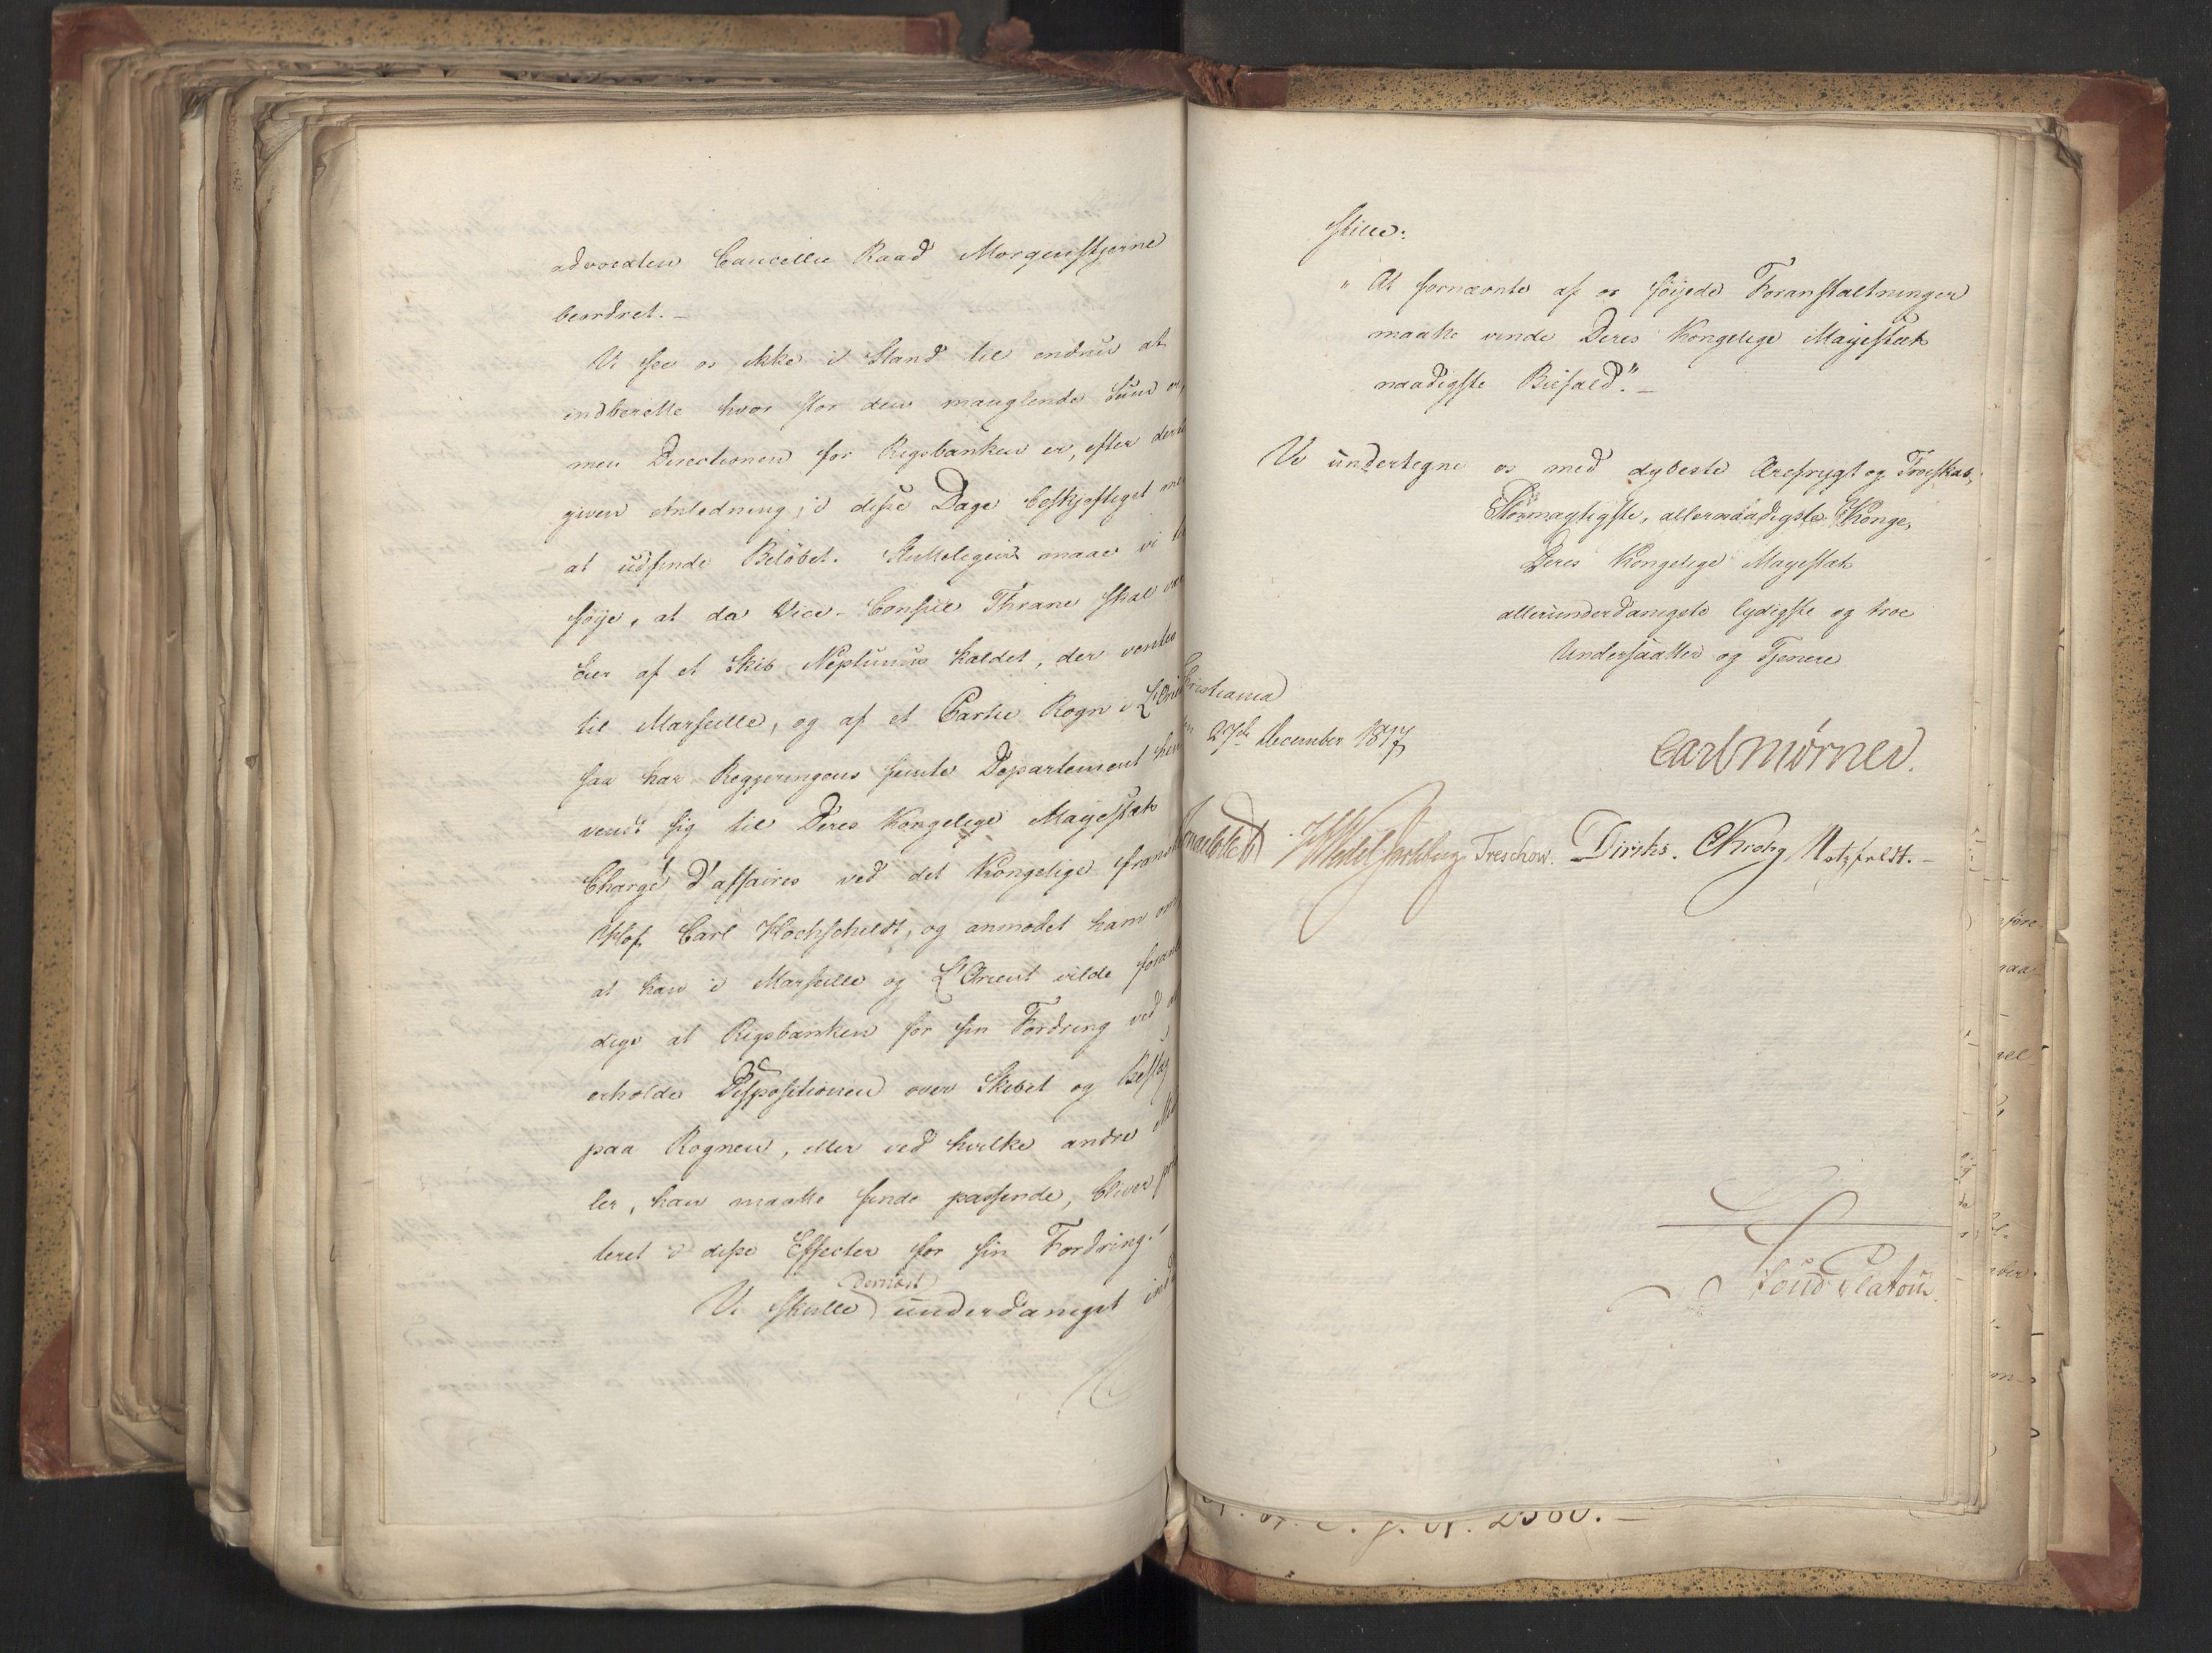 advocaten Cancellie Raad Morgenstjerne
beordret. –
Vi see os ikke i Stand til endnu at
indberette hvor stor den manglende Sum er,
men Directionen for Rigsbanken er, efter dertil
given Anledning, i disse Dage beskjæftiget med
at udfinde Beløbet. Sluttelig maae vi til
føye, at da Vice-Consul Thrane skal være
Eier af et Skib Neptunus kaldet, der ventes
til Marseille, og af et Partie Rogn i L'Orient
saa har Regjeringens femte Departement hen
vendt sig til Deres Kongelige Mayestæts
Chargé d'affaires ved det Kongelige franske
Hof, Carl Hochschildt, og anmodet ham om
at han i Marseille og L'Orient vilde foran
dige at Rigsbanken for sin Fordring ved at
erholde Dispositionen over Skibet og Beslag
paa Rognen, eller ved hvilke andre Mid
ler, han maatte finde passende, bliver
teret i disse Effecter for sin Fordring.
Vi skulle dernæst underdanigst ind
stille:
" At fornævnte af os føyede Foranstaltninger
maatte vinde Deres Kongelige Mayestæts
naadigste Bifald." –
Vi undertegne os med dybeste Ærefrygt og Troeskab,
Stormægtigste, allernaadigste Konge,
Deres Kongelige Mayestæts
allerunderdanigste lydigste og troe
Undersaatter og Tjenere
Christiania
den 27de December 1817
Carl Mörner.
HWedel Jarlsberg Treschow. Diriks. CKrohg Motzfeldt. –
Foud Platou.
2500. –